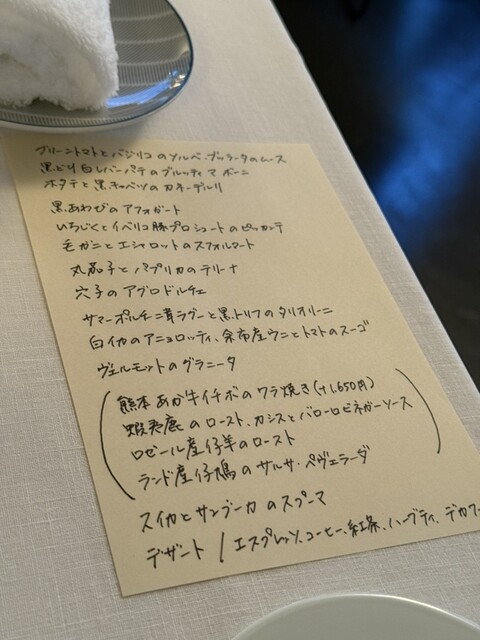 グリーントマトとバジリコのソルベ、ブッラータのムース
黒どり白レバーパテのブルッティ マ ボーニ
ホタテと黒キャベツのカネーデルリ
黒あわびのアフォガート
いちじくとイベリコ豚プロシュートのピッカンテ
毛ガニとエシャロットのスフォルマート
丸茄子とパプリカのテリーナ
穴子のアグロドルチェ
サマーポルチーニ茸ラグーと黒トリフのタリオリーニ
白イカのアニョロッティ、余市産ウニとトマトのスーゴ
ヴェルモットのグラニータ
熊本あか牛イチボのワラ焼き(+1,650円)
蝦夷鹿のロースト、カシスとバローロビネガーソース
ロゼール産仔羊のロースト
ランド産仔鳩のサルサ・ペヴェラーダ
スイカとサンブーカのスプーマ
デザート / エスプレッソ、コーヒー、紅茶、ハーブティ、デカフ